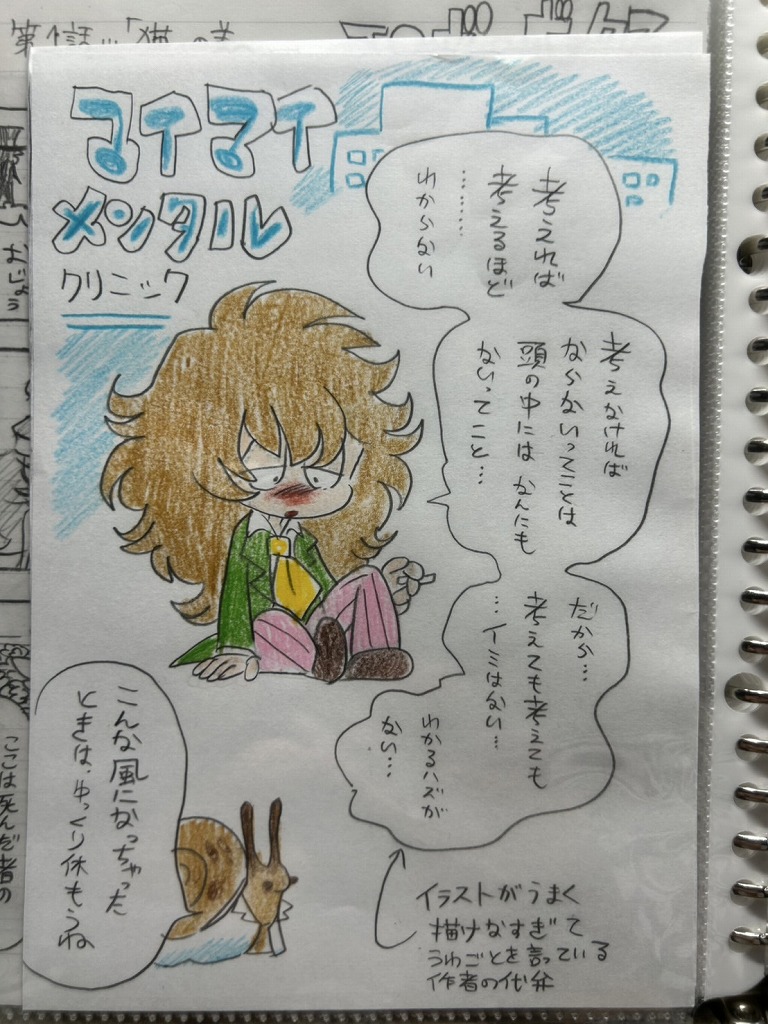 第1話
マイマイ
メンタル
クリニック
考えれば
考えるほど
………
わからない
考えなければ
ならないってことは
頭の中には なんにも
ないってこと…
だから…
考えても考えても
…イミはない…
わかるハズが
ない…
こんな風になっちゃった
ときは、ゆっくり休もうね
イラストがうまく
描けなすぎて
うわごとを言っている
作者の代弁
おじょう
ここは死んだ者の